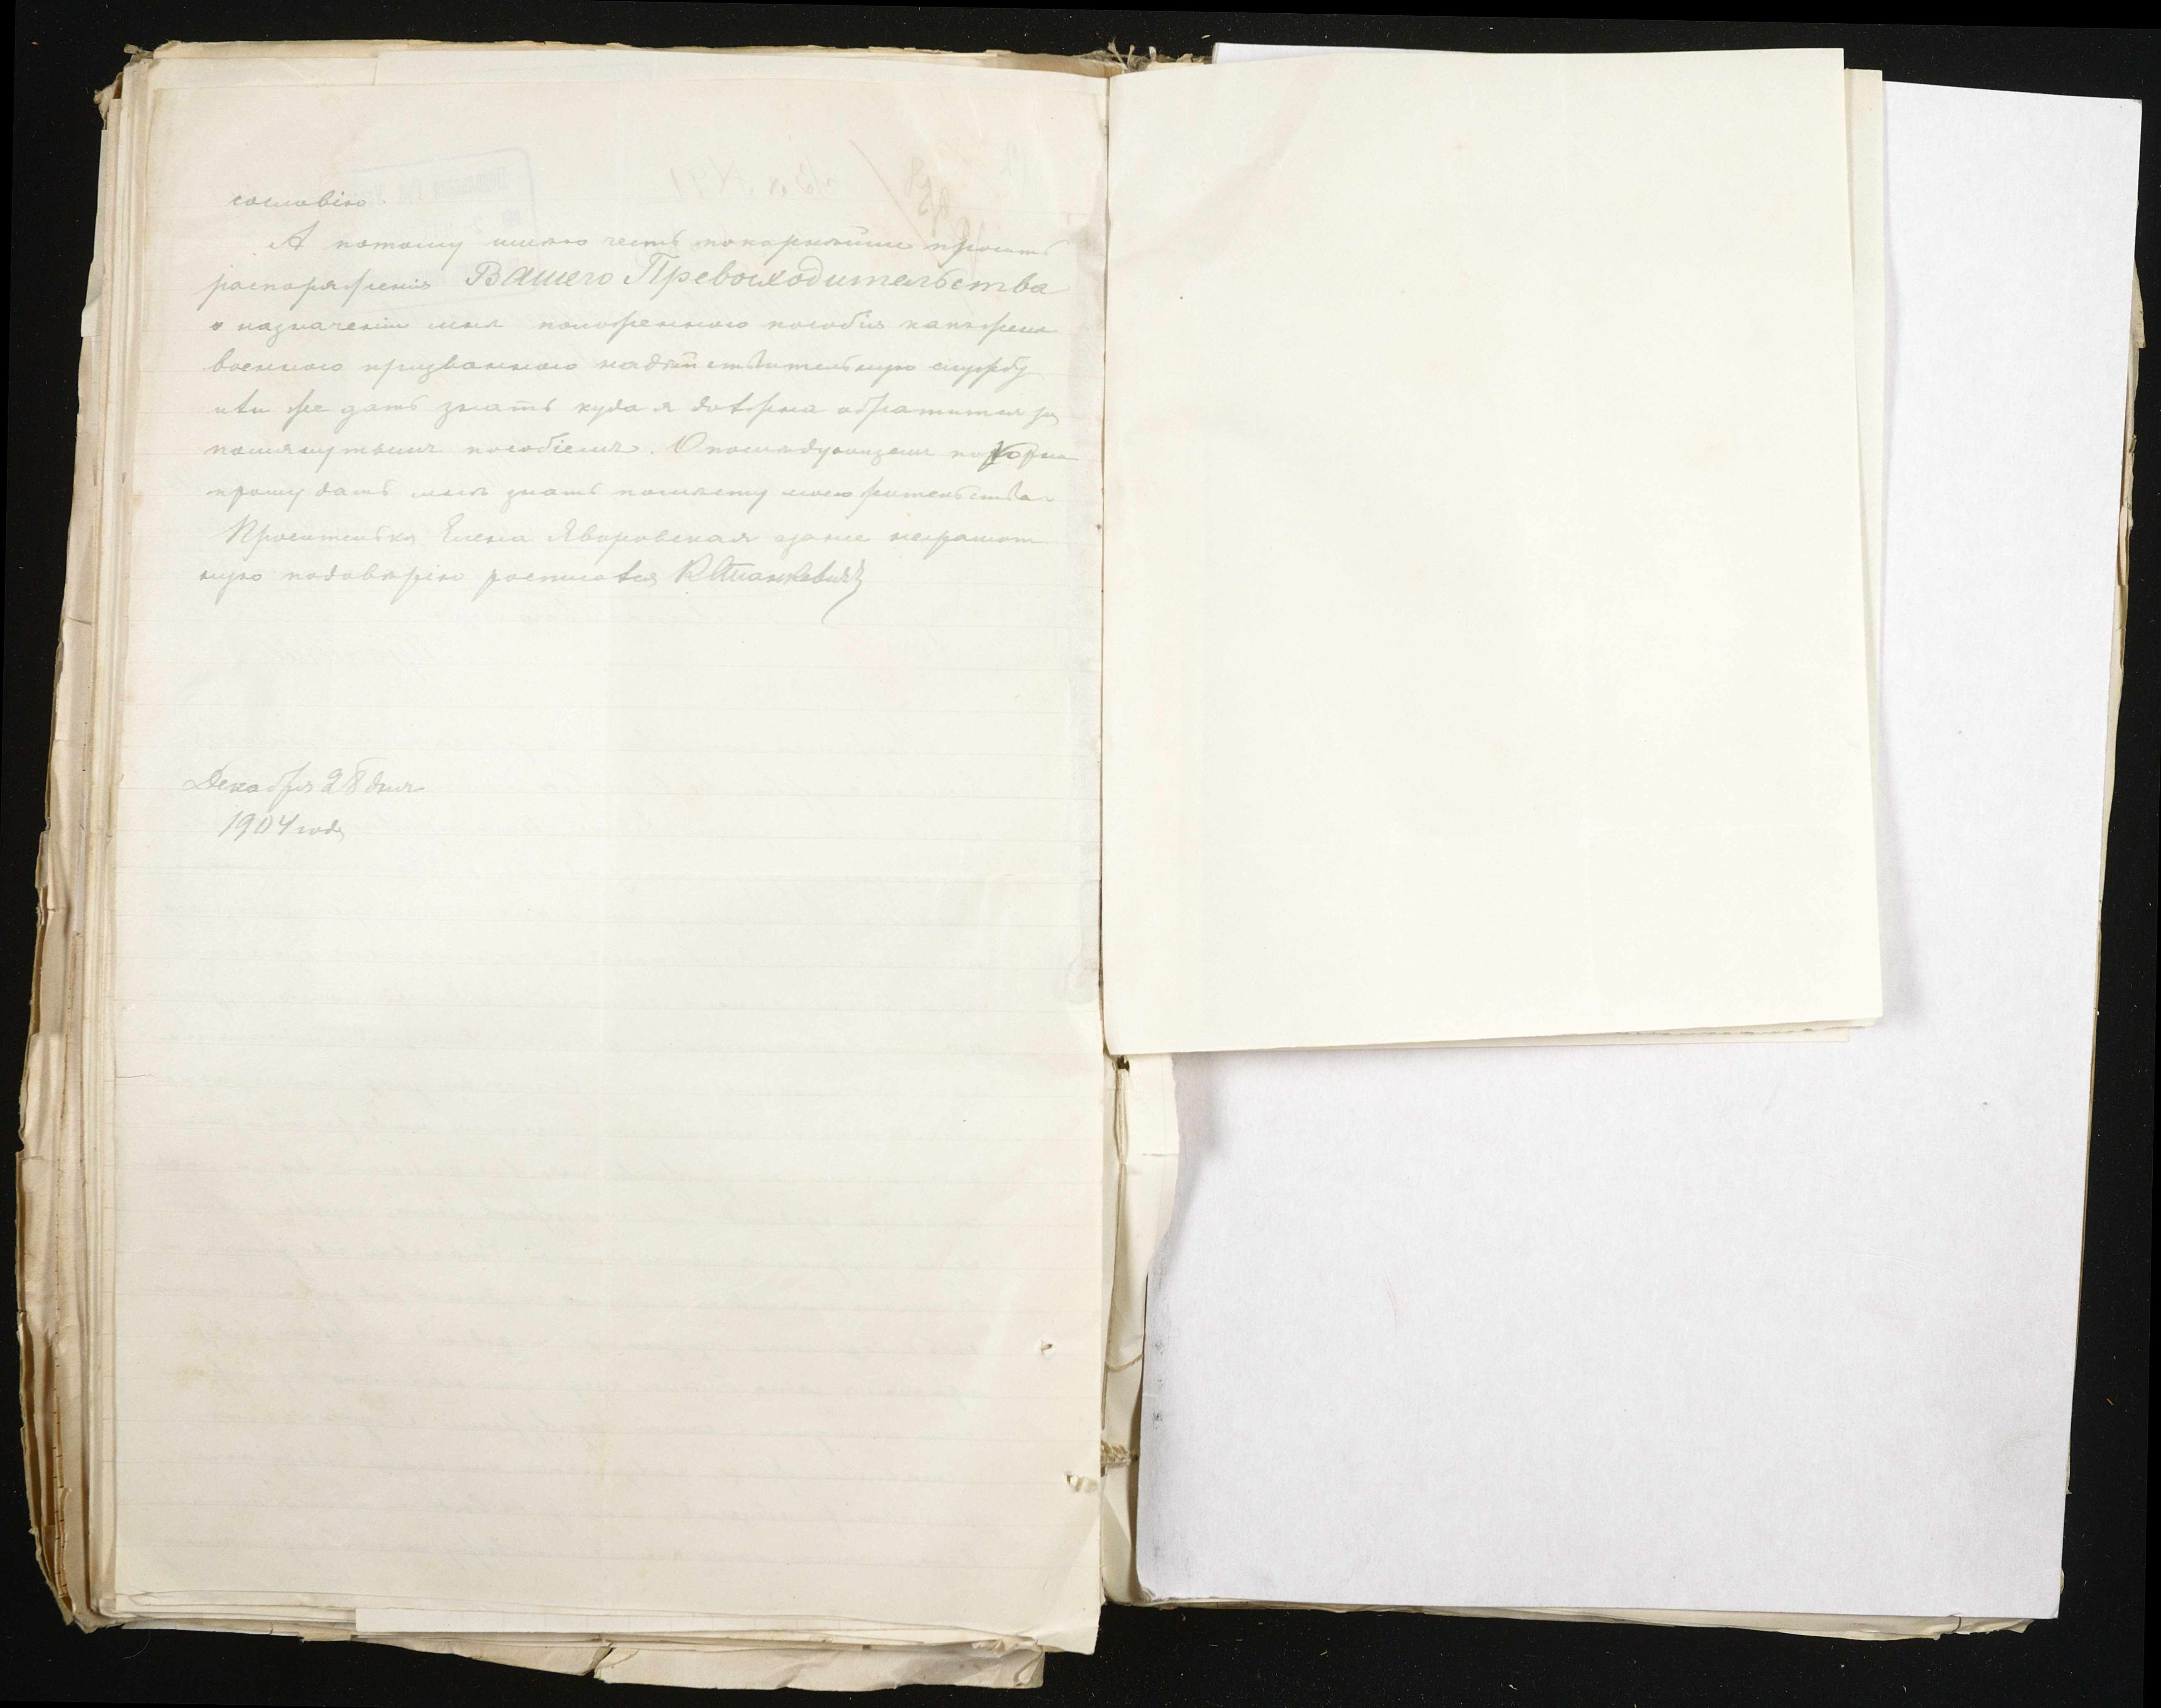 сословію.
А потому имѣю честь покорнѣйше просить
распоряженія Вашего Превосходительства
о назначеніи мнѣ положенного пособія какъ жена
военного призванного надѣйствительную службу
или же дать знать куда я должна обратится за
помянутымъ пособіемъ. Опослѣдующемъ покорно
прошу дать мнѣ знать помѣсту моего жительства
Просителька Елена Яворовская азанее неграмот
ную подовѣрію росписался К Станкевичъ
Декабря 28 дня
1904 года